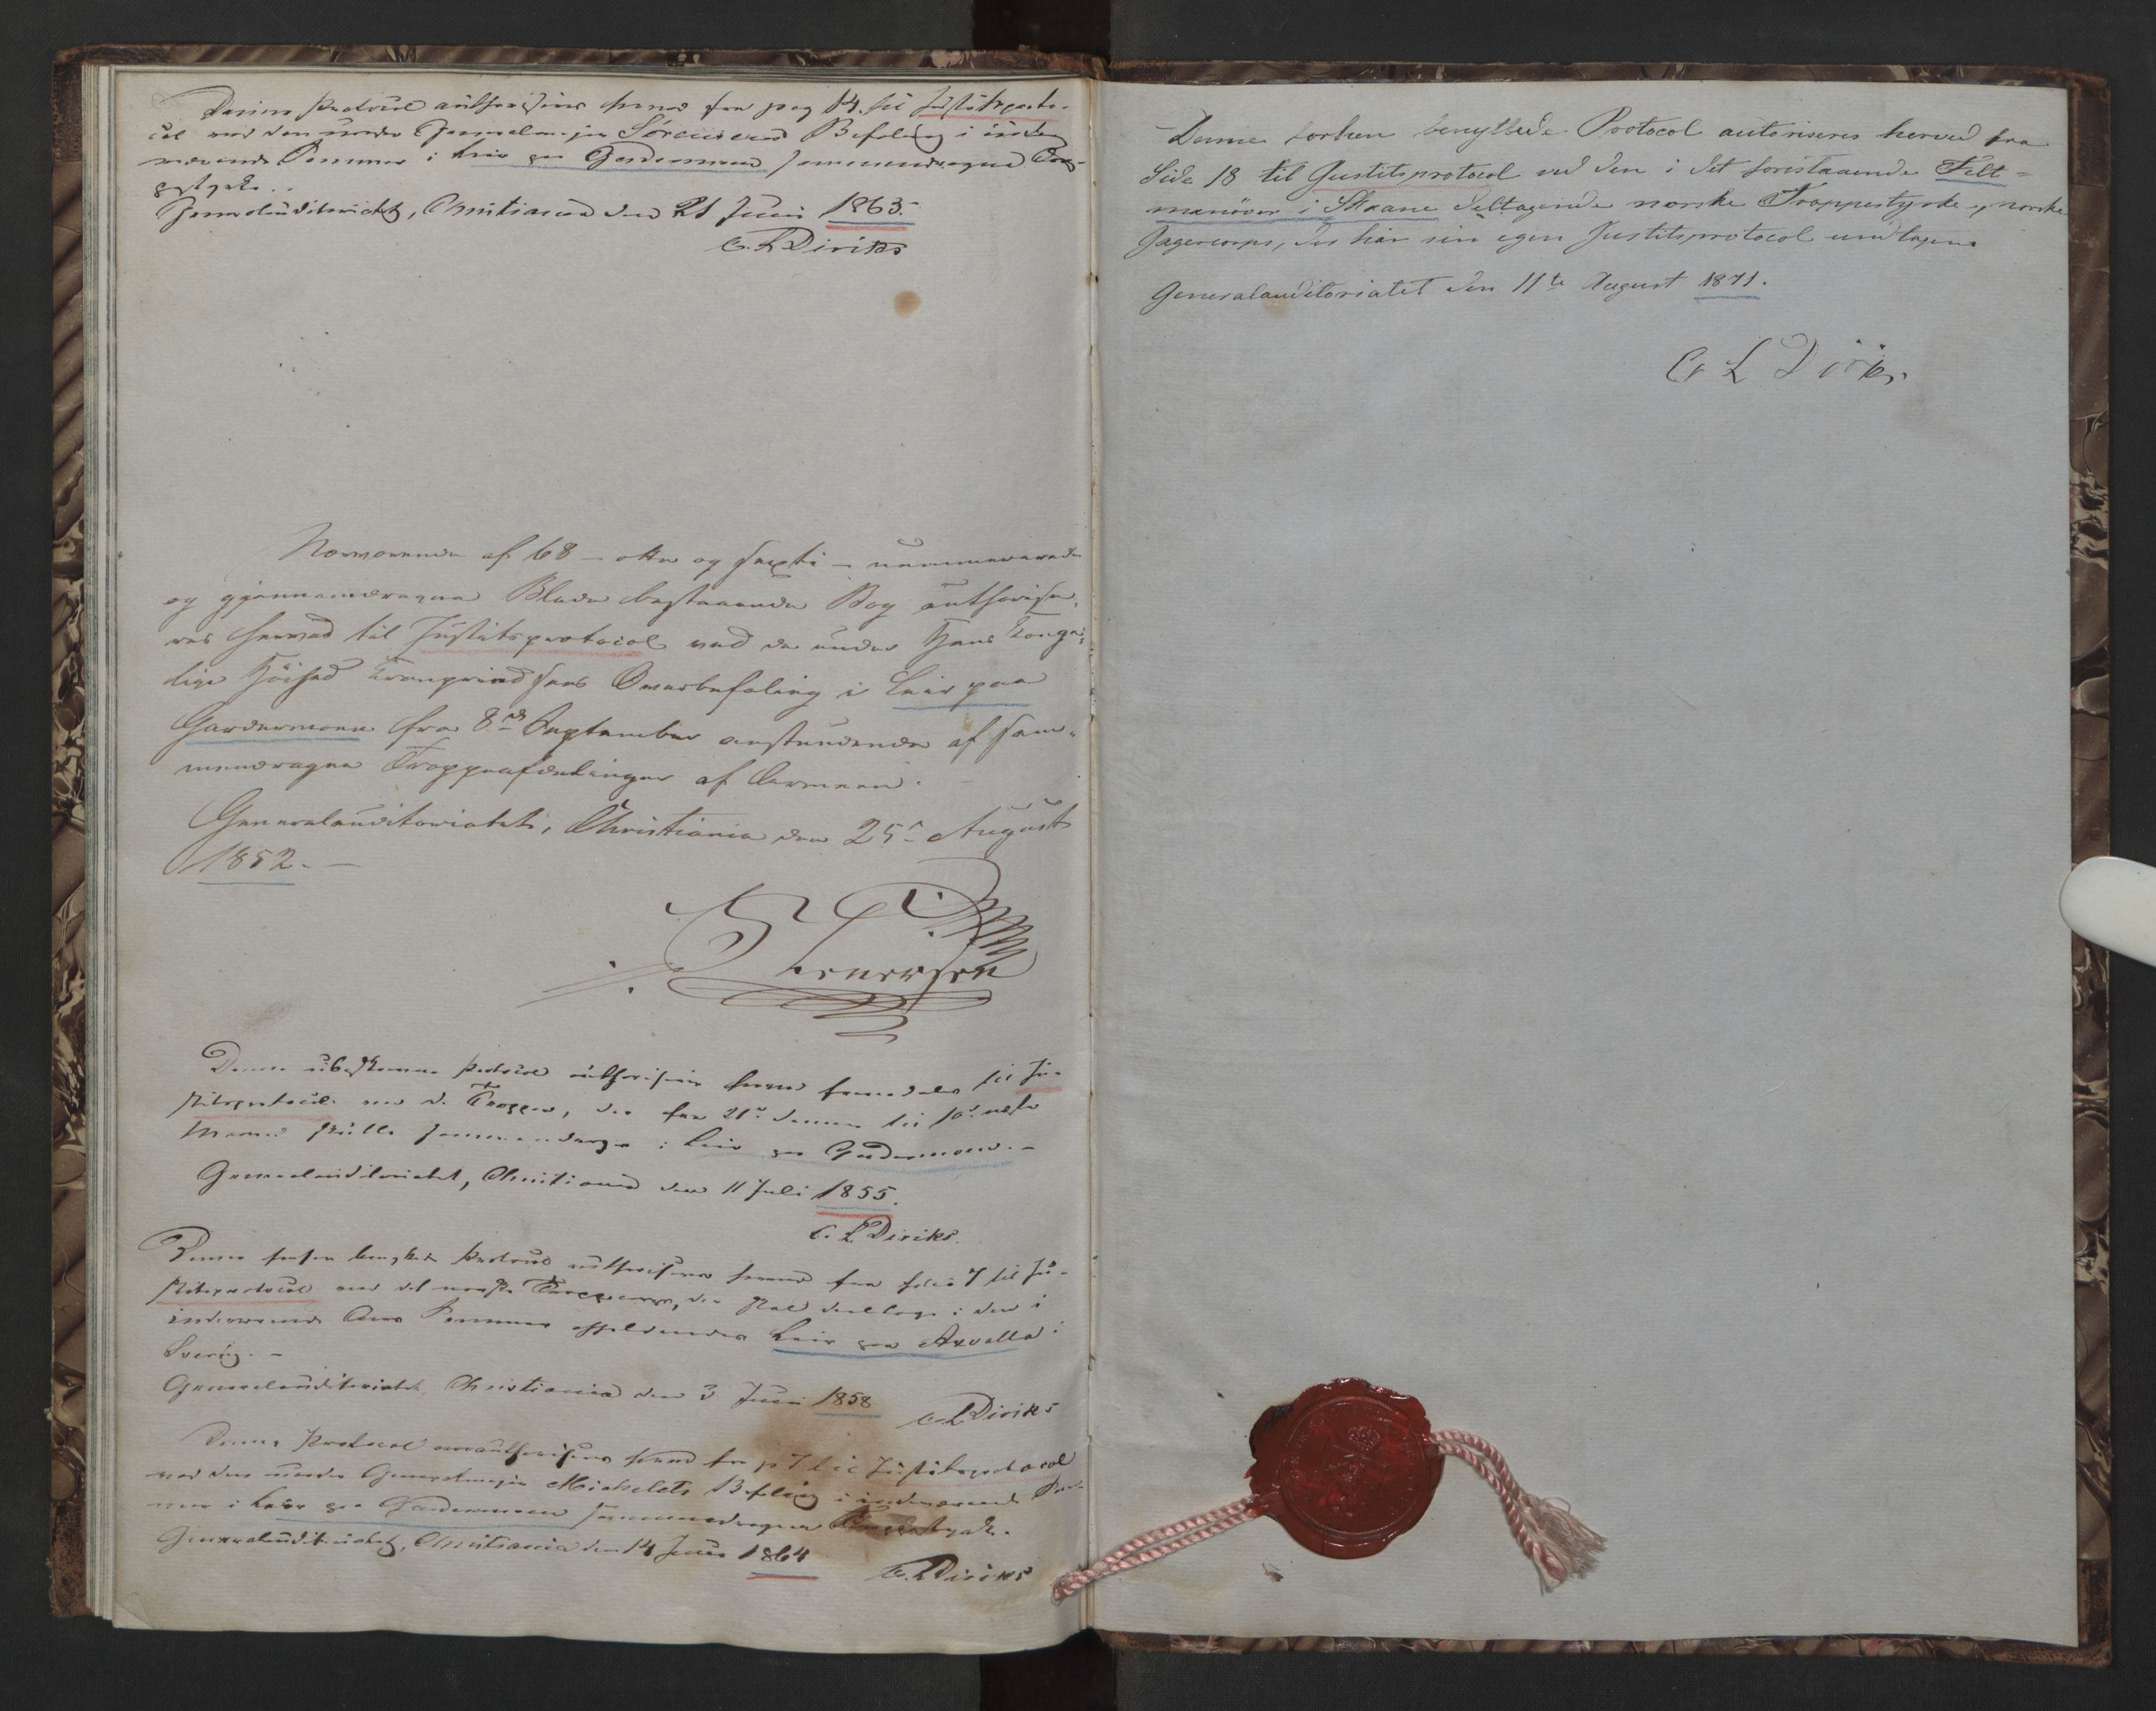 Denne Protocol authoriseres herved fra pag 14 til Justitsproto-
col ved den under Generalmajor Sørensens Befaling i inde-
værende Sommer i Leir paa Gardermoen sammendragne Trop-
pestyrke.
Generalauditoriatet, Christiania den 21 Juni 1863.
C. L Diriks
Nærværende af 68 – otte og sexti – nummererede
og gjennemdragne Blade bestaaende Bog authorise-
res herved til Justitsprotocol ved de under Hans Konge-
lige Høihed Kronprindsens Overbefaling i Leir paa
Gardermoen fra 8de September anstundende af sam-
mendragne Troppeafdelinger af Armeen.
Generalauditoriatet, Christiania den 25 August
1852. –
Denne ubeskrevne Protocol authoriseres herved fremdeles til Ju-
stitsprotocol ved de Tropper, der fra 21de dennes til 10de næste
Maaned skulle sammendrages i Leir paa Gardermoen. –
Generalauditoriatet, Christiania den 11 Juli 1855.
C. L Diriks.
Denne forhen benyttede Protocol authoriseres herved fra folio 7 til Ju-
stitsprotocol ved det norske Troppecorps, der skal deeltage i den i
indeværende Aars Sommer afholdendes Leir paa Axvalla i
Sverig. –
Generalauditoriatet, Christiania den 3 Juni 1858
C L Diriks
Denne Protocol authoriseres herved fra p 7 til Justitsprotocol
ved den under Generalmajor Michelets Befaling i indeværende Som-
mer i Leir paa Gardermoen sammendragne Troppestyrke.
Generalauditoriatet, Christiania den 14 Juni 1864
C. L Diriks
Denne forhen benyttede Protocol autoriseres herved fra
Side 18 til Justitsprotocol ved den i det forestaaende Felt-
manöver i Skaane deltagende norske Troppestyrke, norske
Jægercorps, der har sin egen Justitsprotocol undtagen
Generalauditoriatet den 11te August 1871.
C L Diriks